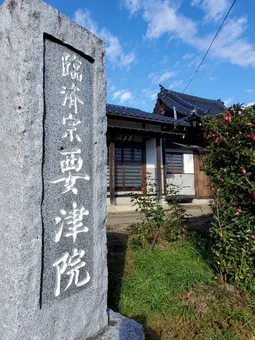 臨済宗要津院